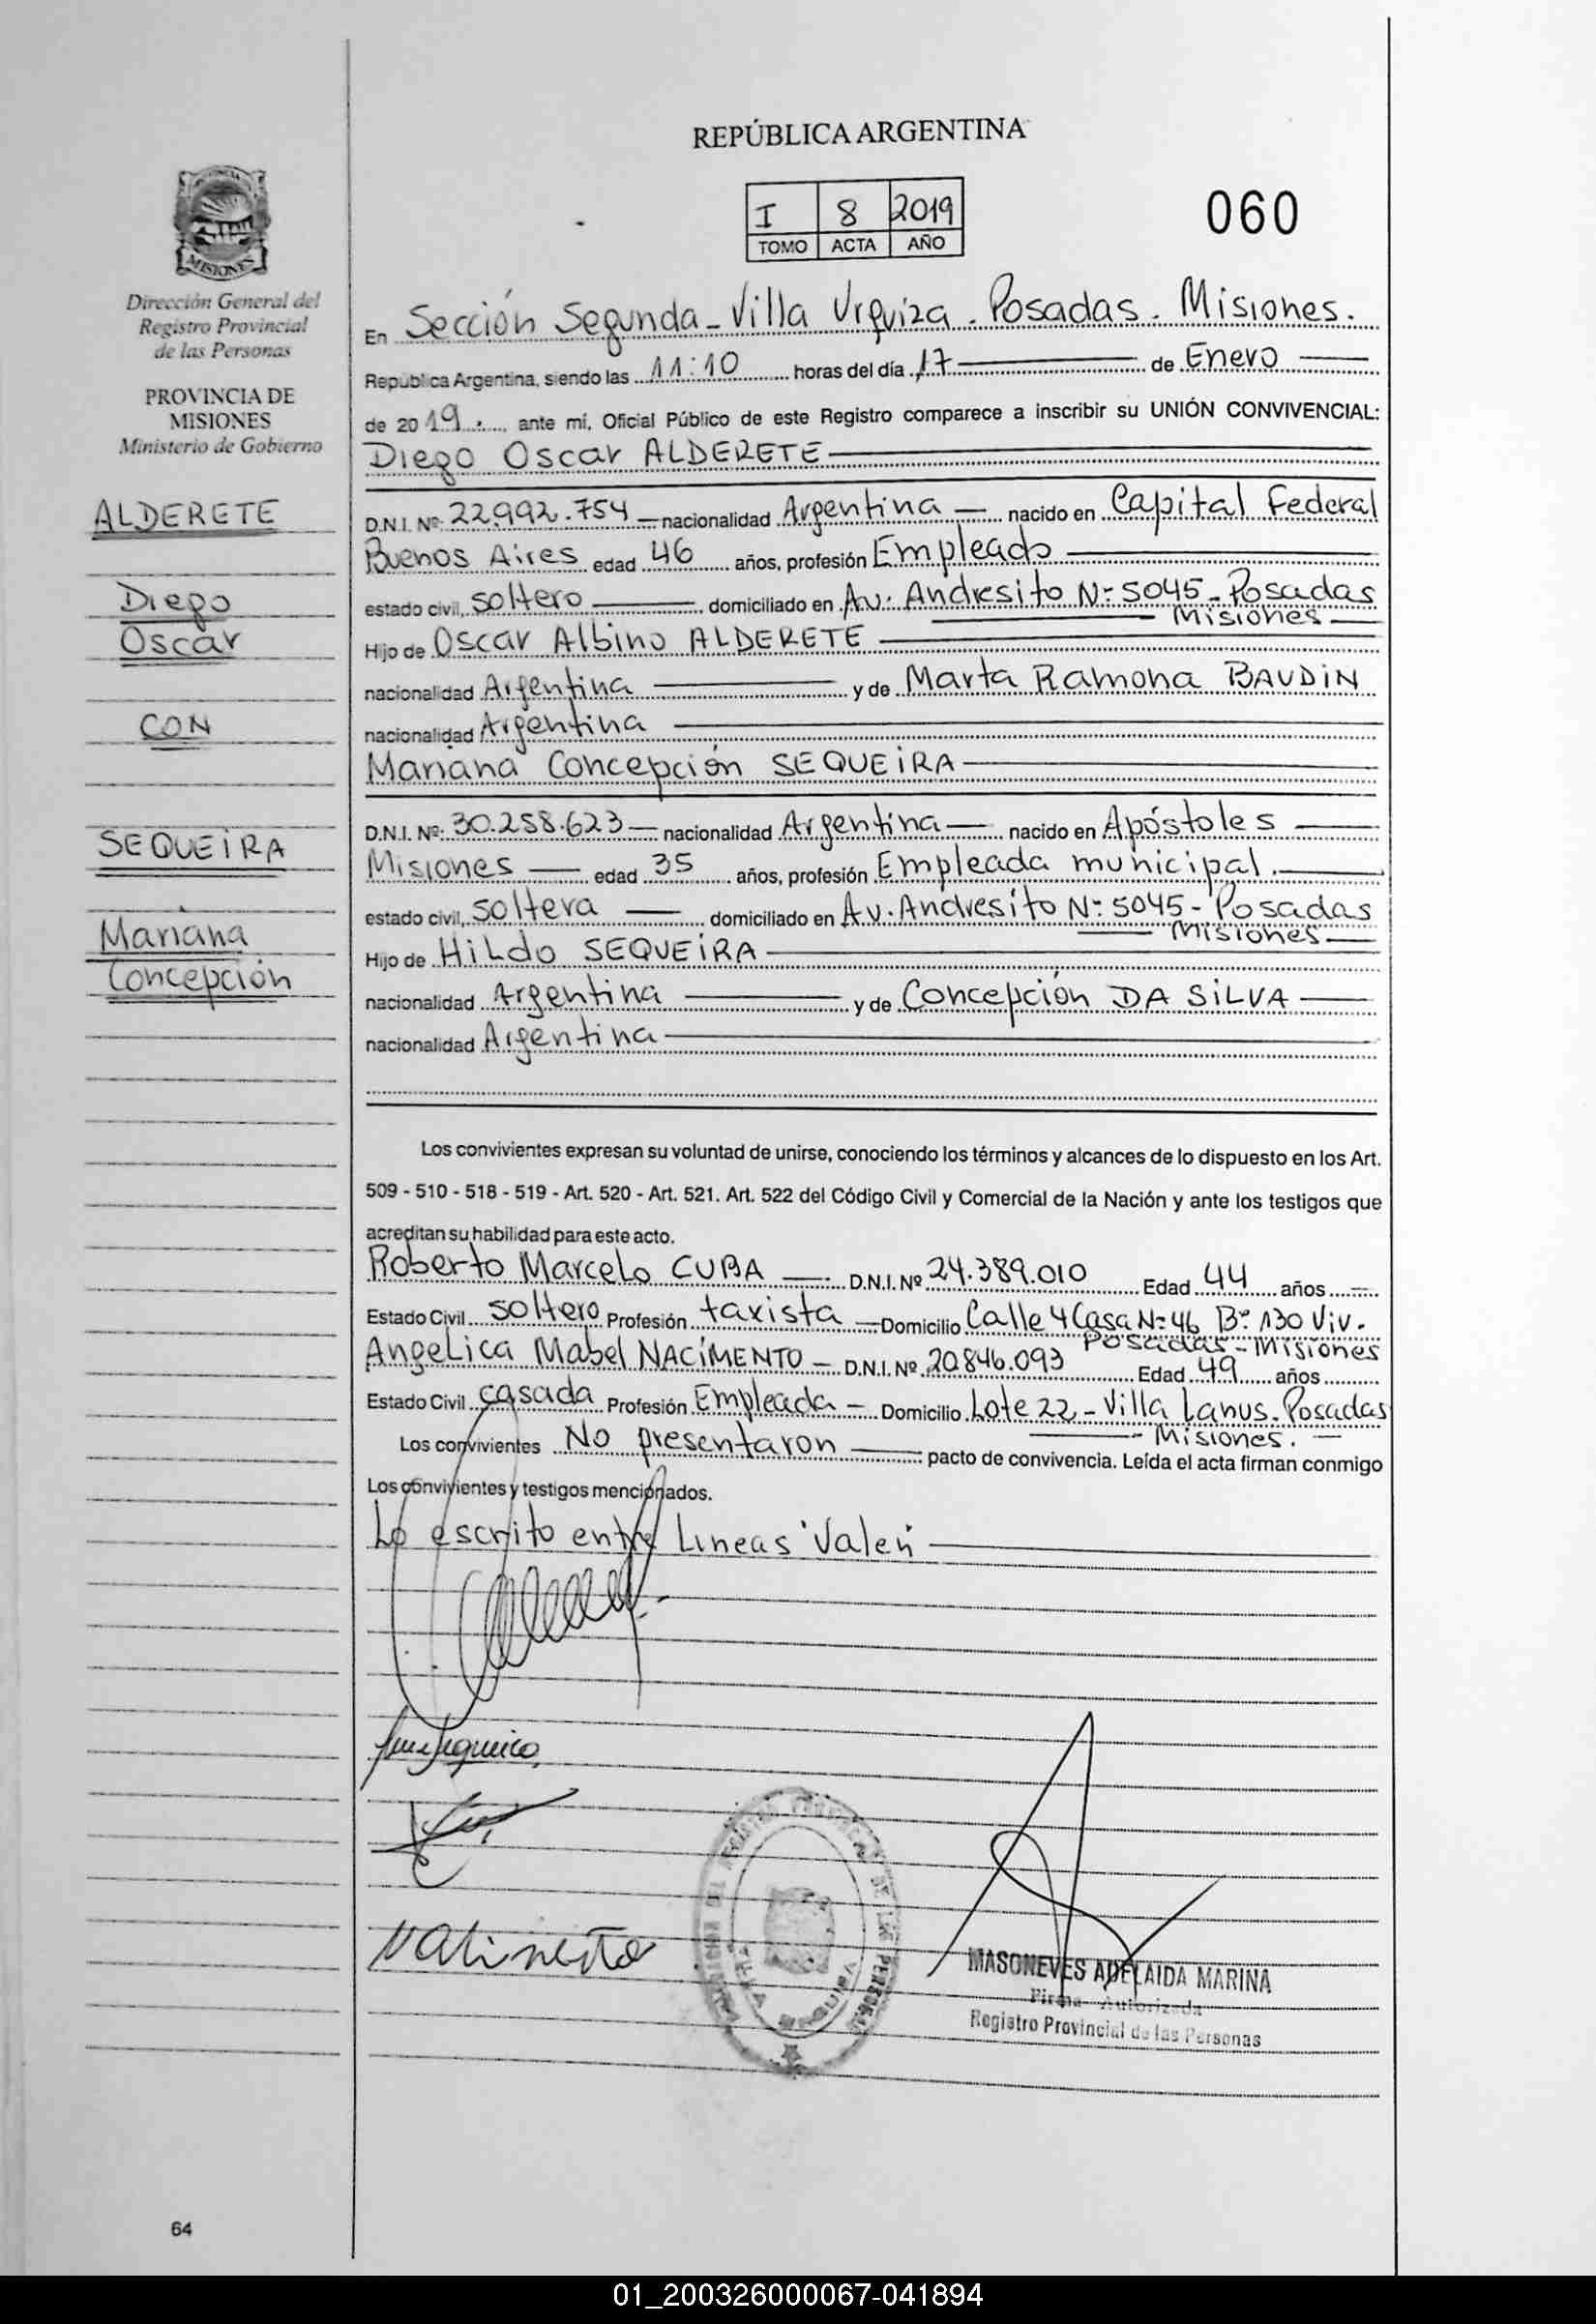 REPÚBLICA ARGENTINA
I 8 2019
TOMO ACTA AÑO
060
PROVINCIA DE MISIONES
Dirección General del
Registro Provincial
de las Personas
PROVINCIA DE
MISIONES
Ministerio de Gobierno
ALDERETE
Diego
Oscar
CON
SEQUEIRA
Mariana
Concepción
En Sección Segunda - Villa Urquiza - Posadas - Misiones.
Republica Argentina, siendo las 11:10 horas del día 17 de Enero
de 2019, ante mí, Oficial Público de este Registro comparece a inscribir su UNIÓN CONVIVENCIAL:
Diego Oscar ALDERETE
D.N.I. Nº 22.992.754 nacionalidad Argentina nacido en Capital Federal
Buenos Aires edad 46 años, profesión Empleado
estado civil, soltero domiciliado en Av. Andresito Nº 5045 - Posadas
Misiones
Hijo de Oscar Albino ALDERETE
nacionalidad Argentina y de Marta Ramona BAUDiN
nacionalidad Argentina
Mariana Concepción SEQUEiRA
D.N.I. Nº: 30.258.623 nacionalidad Argentina nacido en Apóstoles
Misiones edad 35 años, profesión Empleada municipal.
estado civil, soltera domiciliado en Av. Andresito Nº 5045 - Posadas
Misiones
Hijo de HiLdo SEQUEiRA
nacionalidad Argentina y de Concepción DA SiLVA
nacionalidad Argentina
Los convivientes expresan su voluntad de unirse, conociendo los términos y alcances de lo dispuesto en los Art.
509 - 510 - 518 - 519 - Art. 520 - Art. 521. Art. 522 del Código Civil y Comercial de la Nación y ante los testigos que
acreditan su habilidad para este acto.
Roberto Marcelo CUBA D.N.I. Nº 24.389.010 Edad 44 años
Estado Civil soltero Profesión taxista Domicilio Calle 4 Casa Nº 46 Bº 130 Viv.
Posadas - Misiones
AngeLica Mabel NACiMENTO - D.N.I. Nº 20.846.093 Edad 49 años
Estado Civil casada Profesión Empleada - Domicilio Lote 22 - Villa Lanus - Posadas
Misiones.
Los convivientes No presentaron pacto de convivencia. Leída el acta firman conmigo
Los convivientes y testigos mencionados.
Lo escrito entre Lineas "Valen"
REGISTRO PROVINCIAL DE LAS PERSONAS
VILLA URQUIZA
MASONEVES ADELAIDA MARINA
Firma Autorizada
Registro Provincial de las Personas
64
01_200326000067-041894